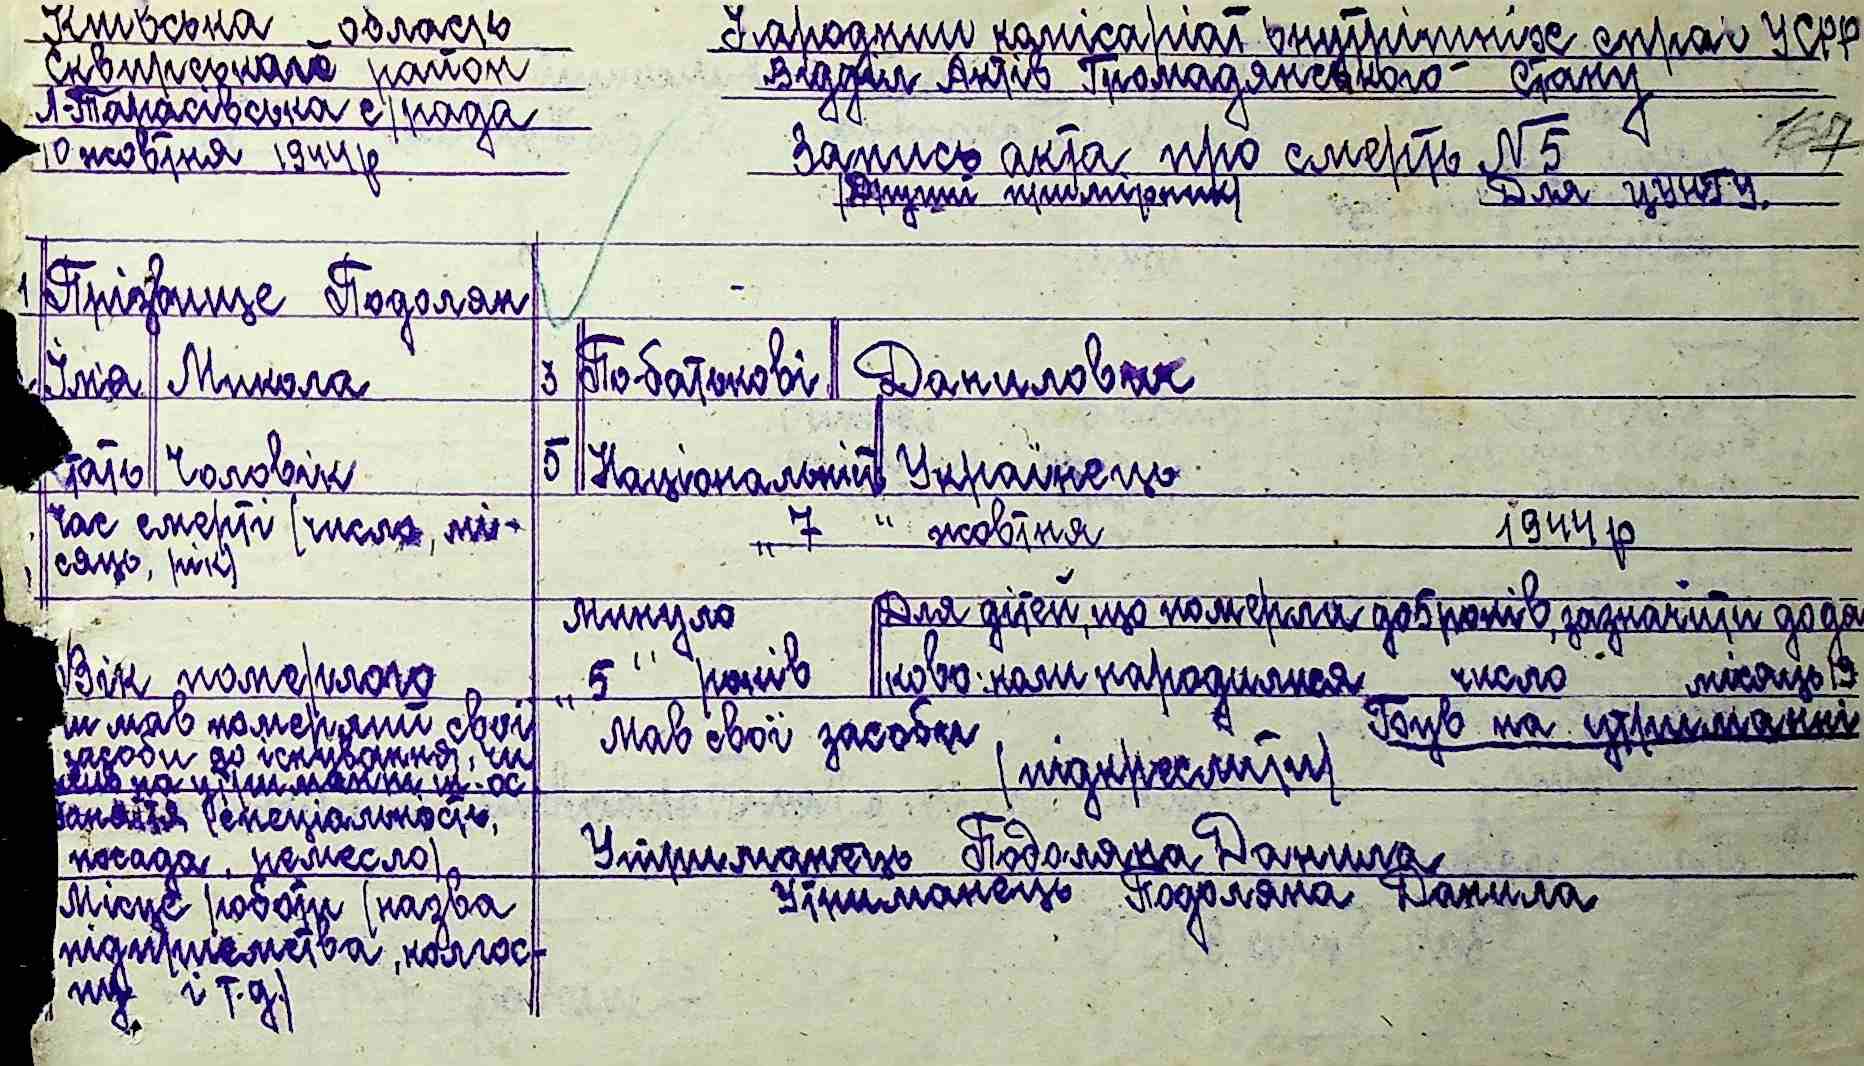 Київська область
Сквирський район
Л-Тарасівська с/рада
10 жовтня 1944 р
Народний комісаріат внутрішніх справ УСРР
Відділ Актів Громадянського Стану
Запись акта про смерть №5
167
(Другий примірник) Для ЦУНГУ.
1 Прізвище Подолян
Імя Микола 3 По батькові Данилович
стать Чоловік 5 Національність Українець
Час смерті (число, мі-
сяць, рік)
„ 7 “ жовтня 1944 р
Вік померлого
Минуло
„ 5 “ років
Для дітей, що померли до 5 років, зазначити додат
ково: коли народилися число місяць 19
чи мав померлий свої
засоби до існування, чи
був на утриманні
Мав свої засоби Був на утриманні
(підкреслити)
Заняття (спеціальність,
посада, ремесло)
Утриманець Подоляна Данила
Місце роботи (назва
підприємства, колгос-
пу і т.д.)
Утриманець Подоляна Данила